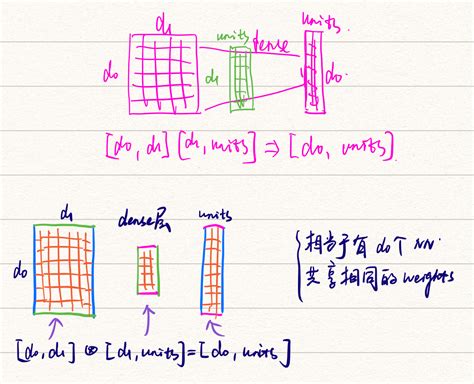 d1 units
units dense
d0 d1 d0
[d0, d1] [d1, units] ⇒ [d0, units]
d1 dense层 units
d0
相当于有 d0 个 NN.
共享相同的 weights
[d0, d1] ⊗ [d1, units] = [d0, units]